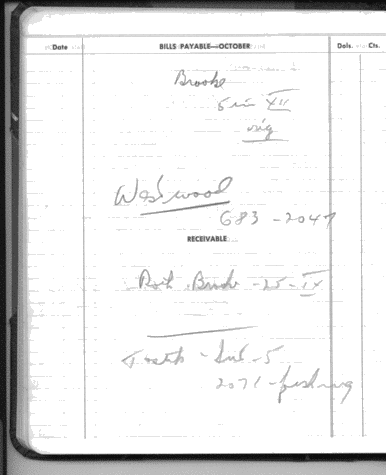 Date BILLS PAYABLE—OCTOBER Dols. Cts.
Brooke
5 in XII
orig
Westwood
683-2047
RECEIVABLE
Roth -25-IX
- 5
2071 - fishing